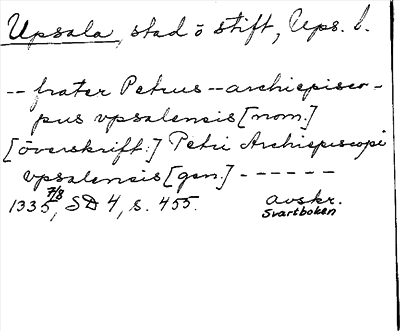 Upsala, stad o stift, Ups. l.
-- frater Petrus -- archiepisco-
pus vpsalensis [nom.]
[överskrift:] Petri Archiepiscopi
vpsalensis [gen.] ------
1335 7/8, SD 4, s. 455. avskr.
Svartboken